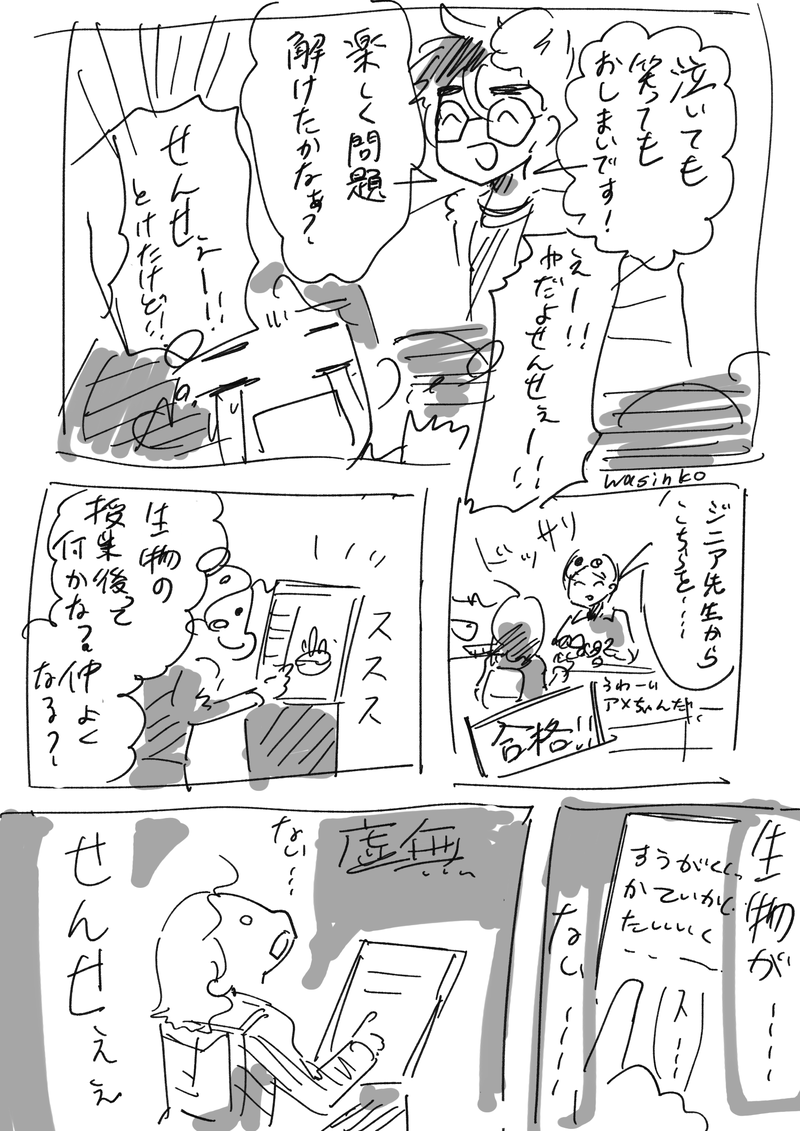 泣いても
笑っても
おしまいです!
楽しく問題
解けたかなぁ?
えー!!
やだよせんせぇー!!
せんせぇー!!
とけたけど!!
wasinko
ジニア先生から
こちらを…
ドッサリ
うわーい
アメちゃんだ
合格!!
生物の
授業後って
何かな?仲よく
なる?
ススス
生物が…
ない…
すうがく
かていか
たいいく
ス…
虚無…
ない…
せんせぇぇ